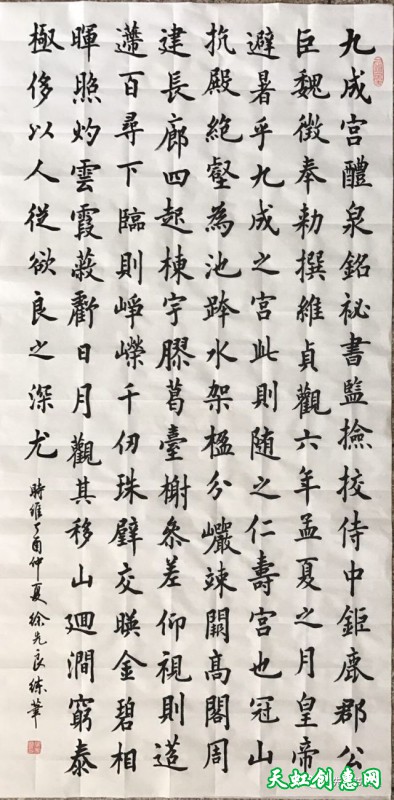 九成宮醴泉銘祕書監撿挍侍中鉅鹿郡公
臣魏徵奉勑撰維貞觀六年孟夏之月皇帝
避暑乎九成之宮此則随之仁壽宮也冠山
抗殿絶壑為池跨水架楹分巖竦闕高閣周
建長廊四起棟宇膠葛臺榭叅差仰視則迢
遰百尋下臨則崢嶸千仞珠璧交暎金碧相
暉照灼雲霞蔽虧日月觀其移山廻澗窮泰
極侈以人從欲良之深尤
時維丁酉仲夏徐先良練筆
天虹创惠网